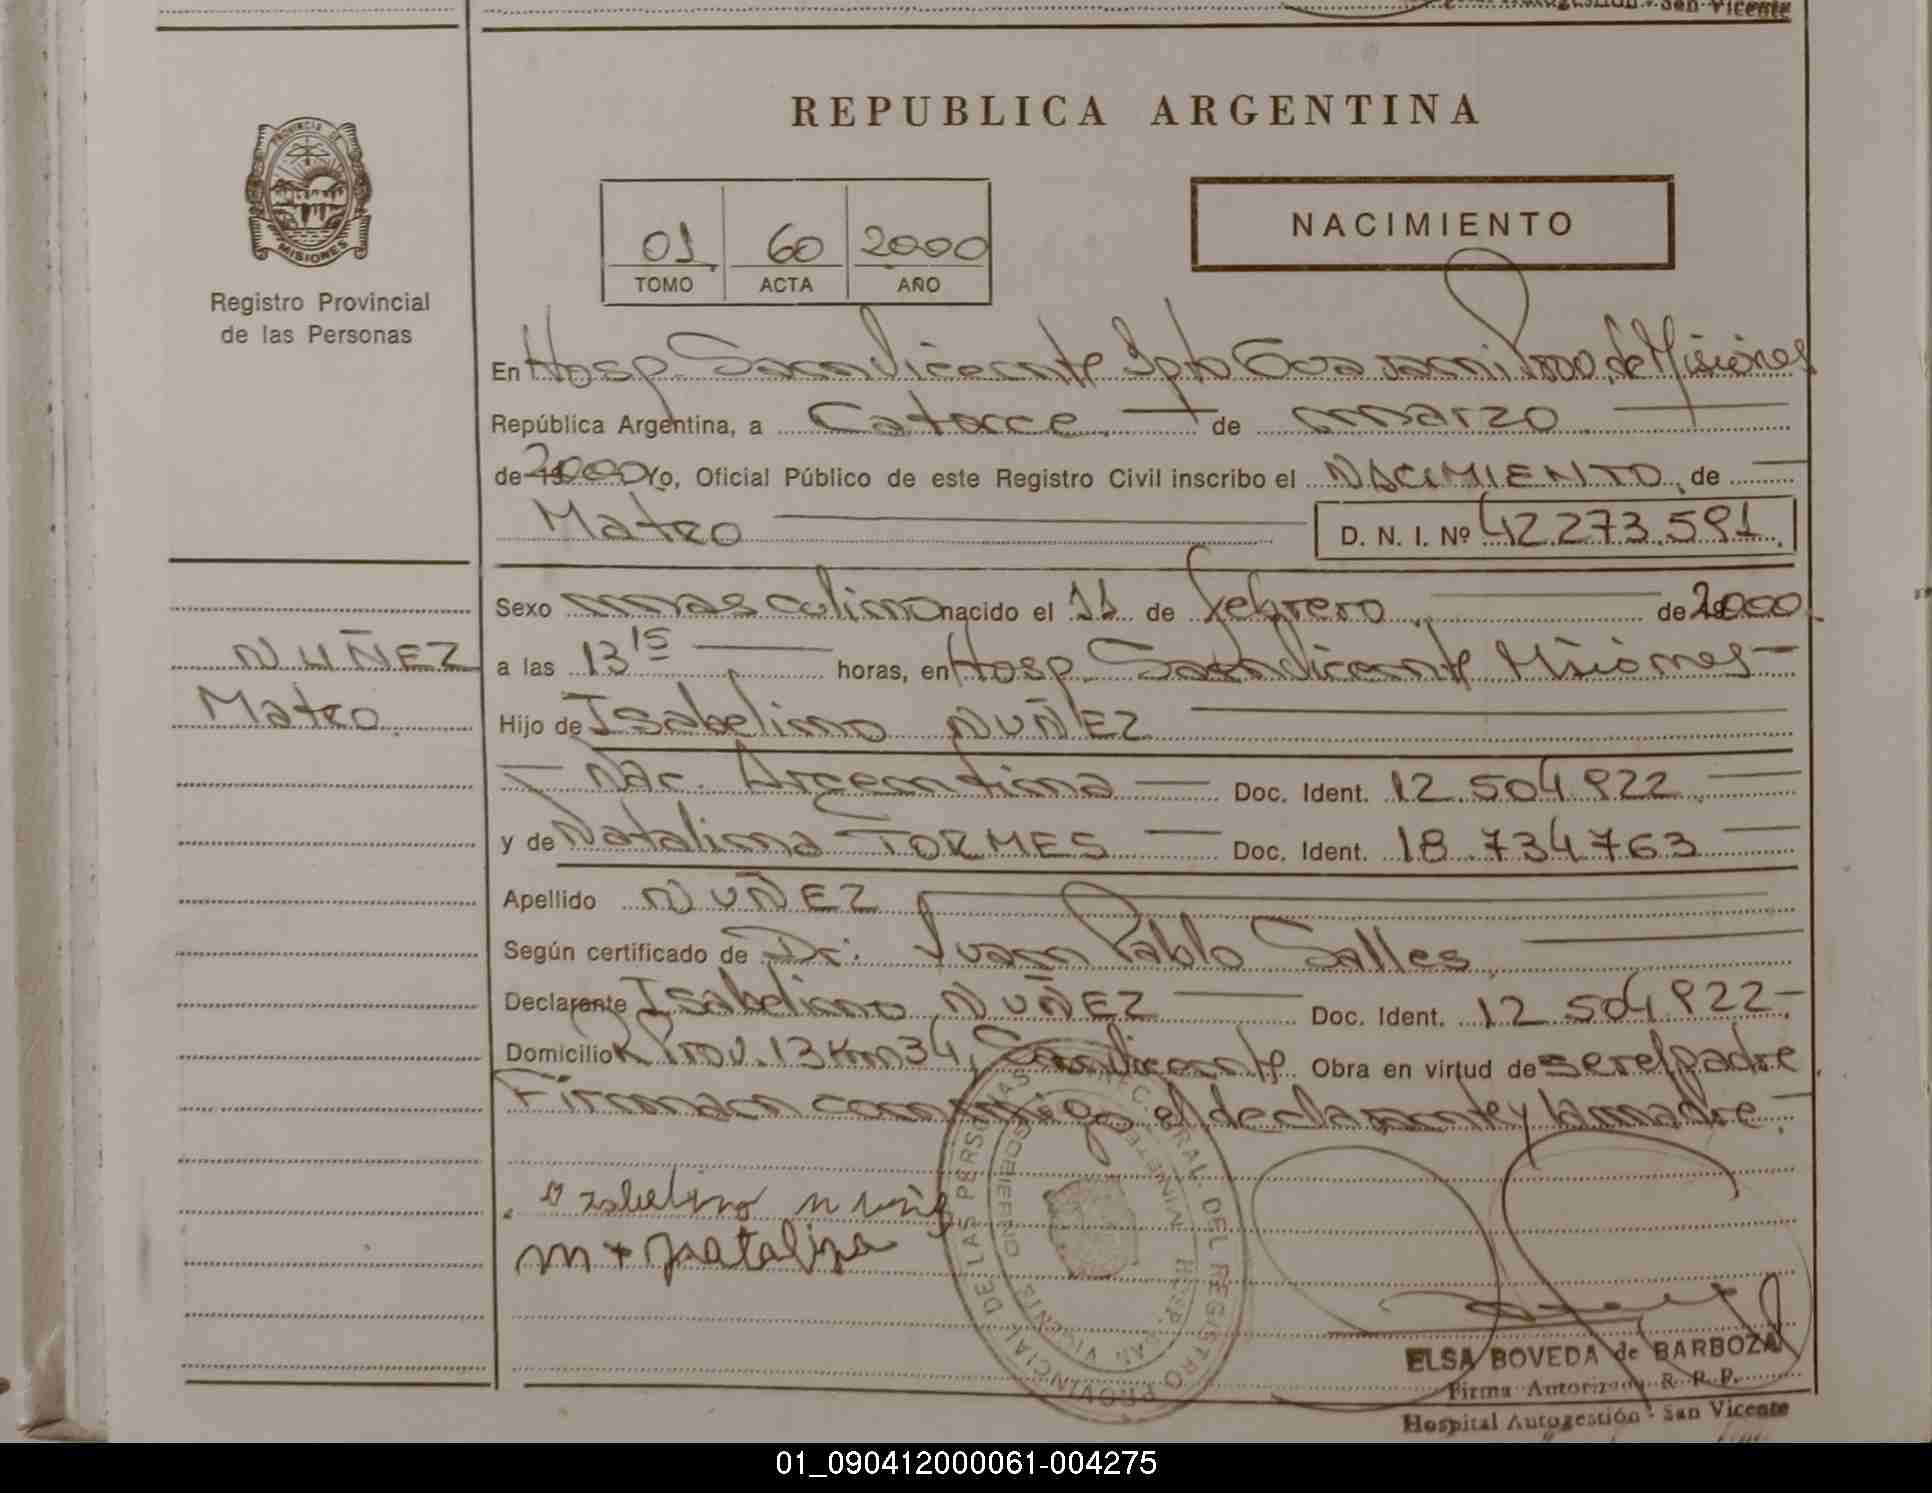 San Vicente
PROVINCIA DE
MISIONES
Registro Provincial
de las Personas
REPUBLICA ARGENTINA
01 60 2000
TOMO ACTA AÑO
NACIMIENTO
En Hosp. San Vicente Dpto Guarani Prov. de Misiones
República Argentina, a Catorce de marzo
de 19 2000 Yo, Oficial Público de este Registro Civil inscribo el NACIMIENTO de
Mateo D. N. I. Nº 42.273.591
Sexo masculino nacido el 11 de febrero de 2000
NUÑEZ
Mateo
a las 13 15 horas, en Hosp. San Vicente Misiones
Hijo de Isabelino NUÑEZ
Nac. Argentina Doc. Ident. 12.504.922
y de Natalina TORMES Doc. Ident. 18.734.763
Apellido NUÑEZ
Según certificado de Dr. Juan Pablo Salles
Declarante Isabelino NUÑEZ Doc. Ident. 12.504.922
Domicilio R. Prov. 13 Km 34, San Vicente Obra en virtud de ser el padre
Firman conmigo el declarante y la madre.
Isabelino
m + natalina
PROVINCIAL DE LAS PERSONAS
DEL REGISTRO
HOSP. SAN VICENTE
ELSA BOVEDA de BARBOZA
Firma Autorizada R. P. P.
Hospital Autogestión - San Vicente
01_090412000061-004275